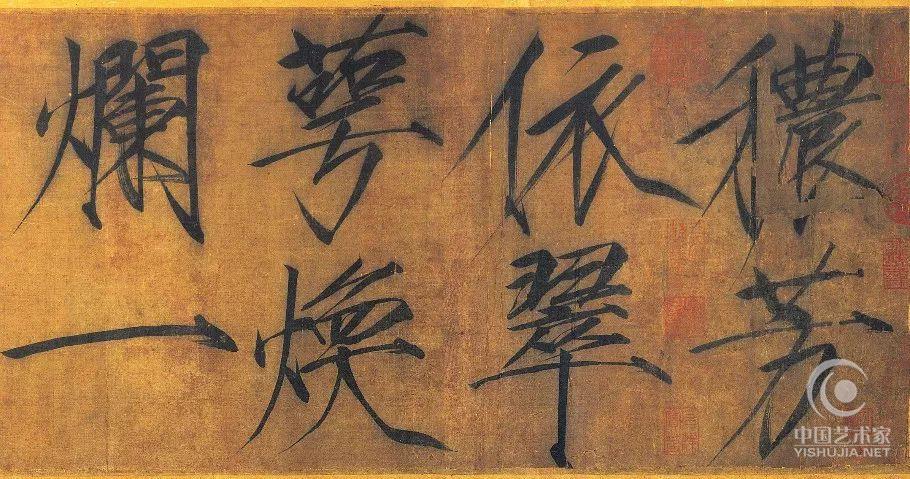 穠芳
依翠
萼煥
爛一
中国艺术家
YISHUJIA.NET